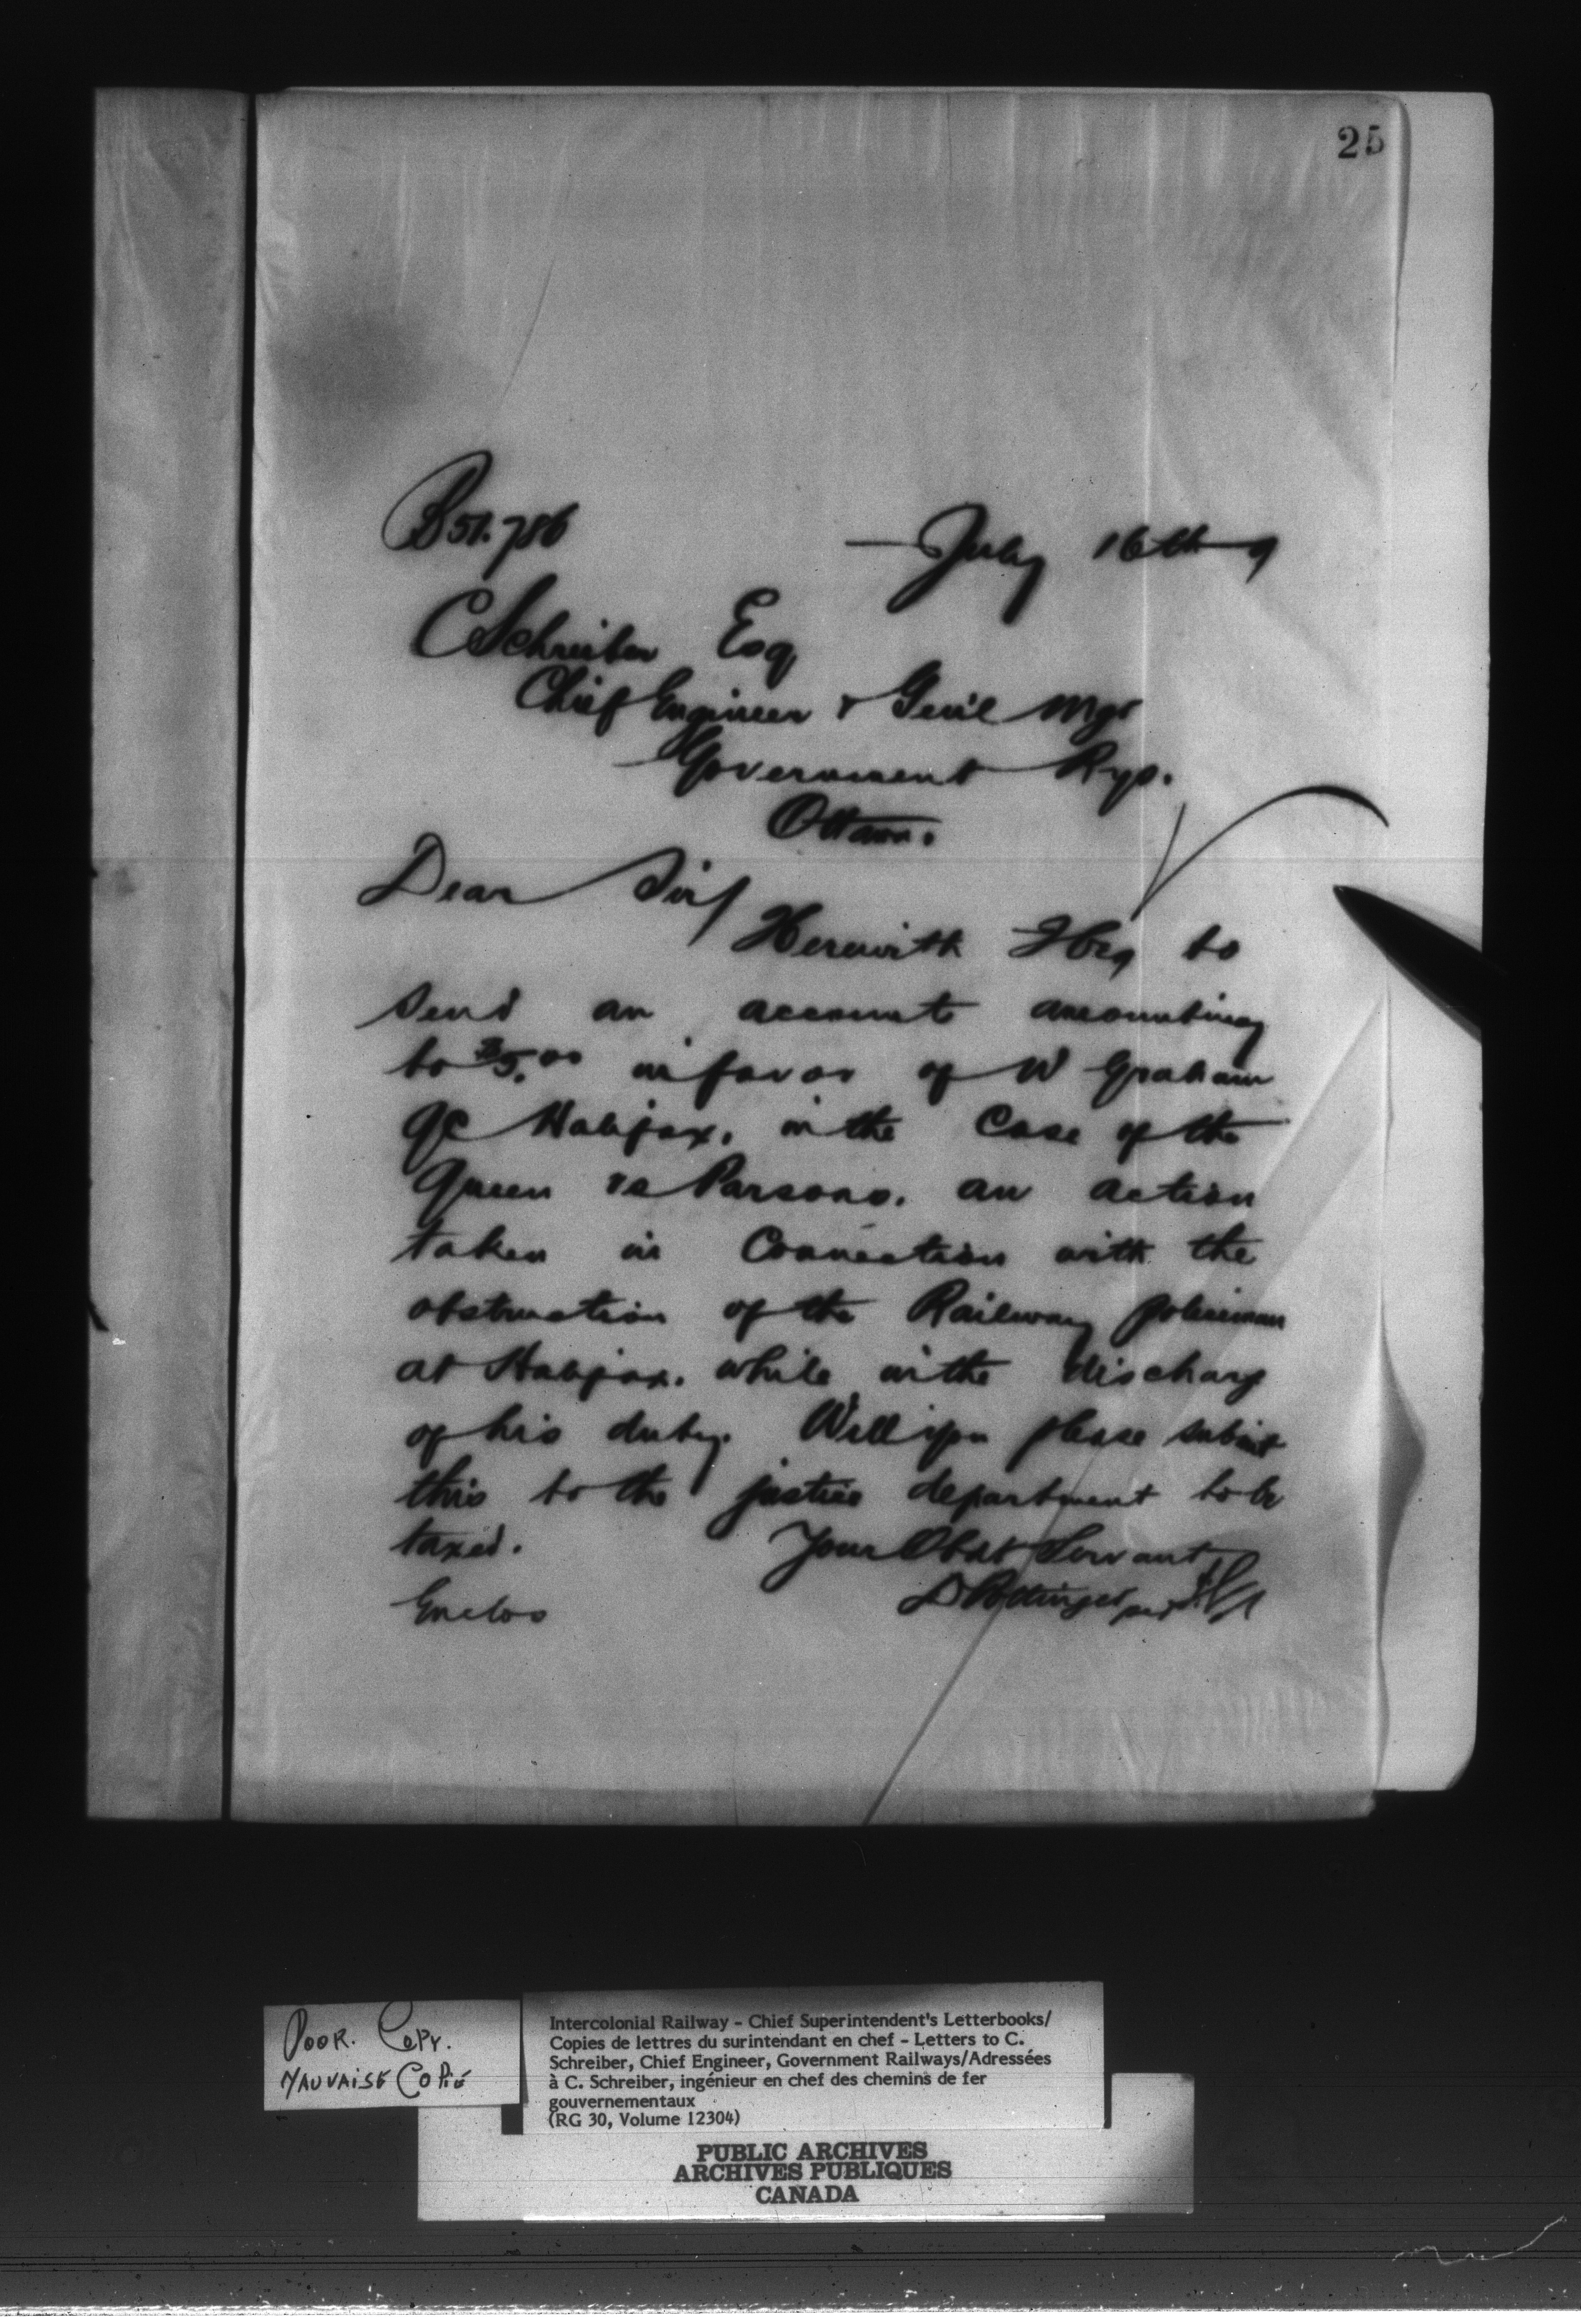 25
B 51.786
July 16th 9
C Schreiber Esq
Chief Engineer & Gen'l Mgr
Government Rys.
Ottawa.
Dear Sir/
Herewith I beg to
send an account amounting
to $5.00 in favor of W Graham
QC Halifax, in the Case of the
Queen vs Parsons. an action
taken in Connection with the
obstruction of the Railway policeman
at Halifax. while in the discharge
of his duty. Will you please submit
this to the justice department to be
taxed. Your Obdt Servant
Enclos D Pottinger per
POOR. COPY.
MAUVAISE COPIE
Intercolonial Railway - Chief Superintendent's Letterbooks/
Copies de lettres du surintendant en chef - Letters to C.
Schreiber, Chief Engineer, Government Railways/Adressées
à C. Schreiber, ingénieur en chef des chemins de fer
gouvernementaux
(RG 30, Volume 12304)
PUBLIC ARCHIVES
ARCHIVES PUBLIQUES
CANADA